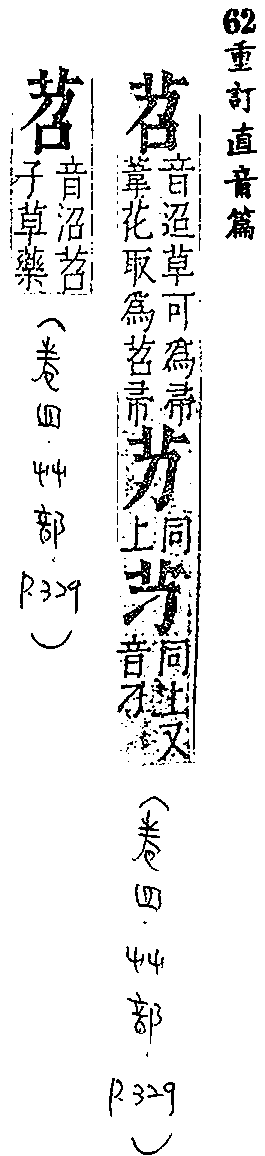 62重訂直音篇
苕音迢草可為帚葦花取為苕帚芀同上同上又音
(卷四.艸部.P.329)
苕音沼苕子草藥
(卷四.艸部.P.329)